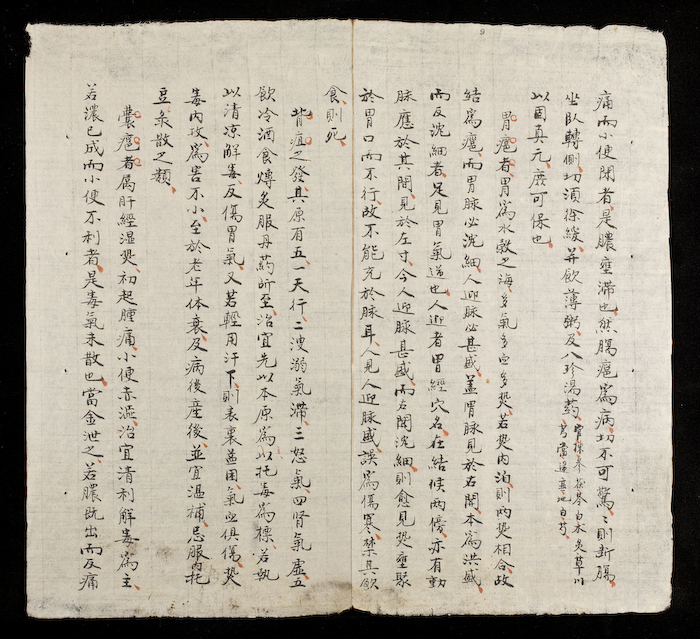 痛而小便閉者是膿壅滯也然腸癰為病切不可驚〻則斷腸
坐臥轉側切須徐緩并飲薄粥及八珍湯药甲𣓪參茯苓白朮炙草川芎當歸熟地白芍
以固真元庶可保也
胃癰者胃為水穀之海多氣多血多𤍠若𤍠内泊則兩𤍠相合故
結為癰而胃脉必沈細人迎脉必甚盛蓋胃脉見於右関本為洪盛
而反沈細者足見胃氣逆也人迎者胃經穴名在結候兩傍亦有動
脉應於其間見於左寸今人迎脉甚盛而右関沈細則愈見𤍠壅聚
於胃口而不行故不能充於脉耳人見人迎脉盛誤為傷寒禁其飲
食則死
背疽之發其原有五一天行二洩溺氣滞三怒氣四腎氣虛五
飲冷酒食煿炙服丹药所至治宜先以本原為以托毒為標若執
以清凉解毒反傷胃氣又若輕用汗下則表裏益困氣血俱傷𤍠
毒内攻為害不小至於老年体衰及病後産後並宜温補忌服内托
豆汞散之類
囊癰者属肝經湿𤍠初起腫痛小便赤澁治宜清利解毒為主
若濃已成而小便不利者是毒氣未散也當金泄之若膿既出而反痛